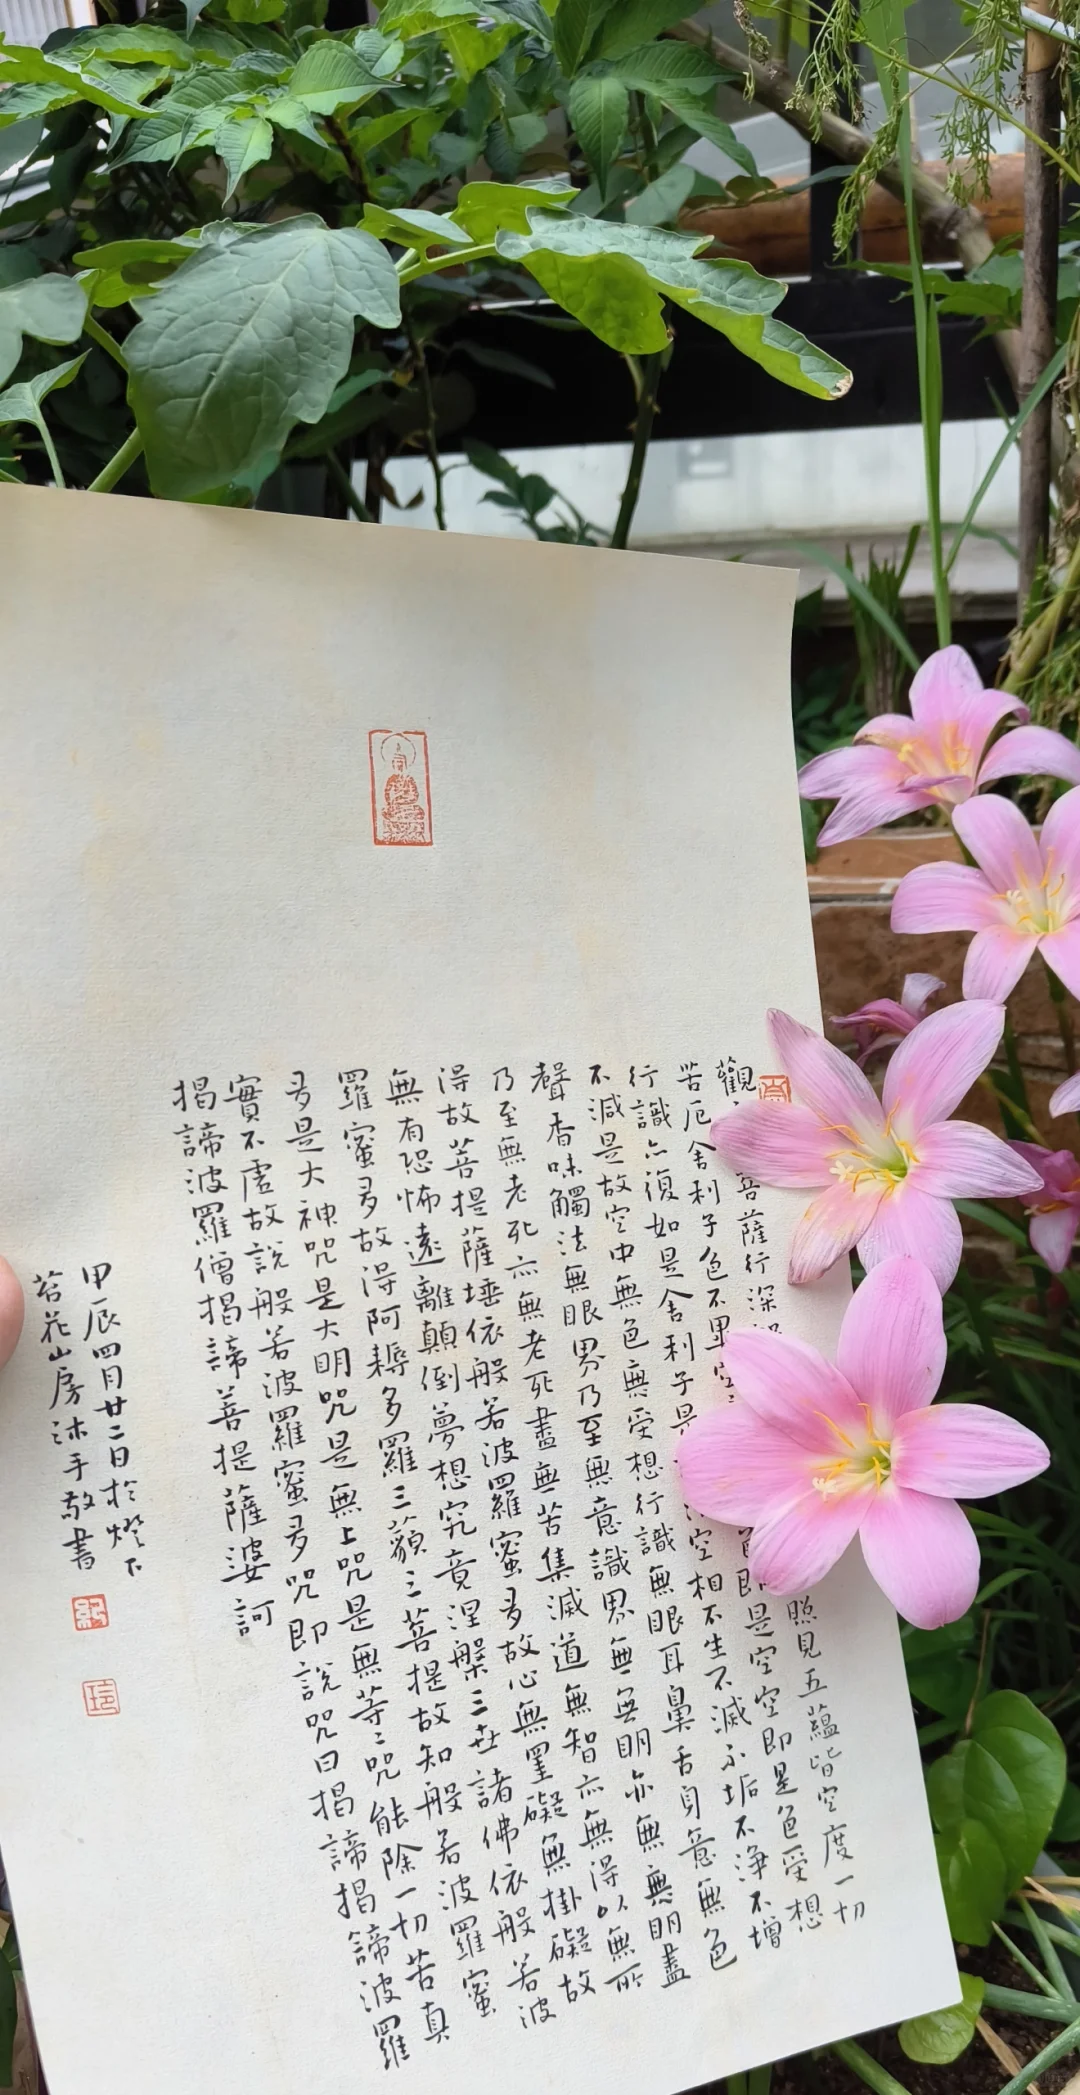 觀菩薩行深照見五蘊皆空度一切
苦厄舍利子色不異空即是空空即是色受想
行識亦復如是舍利子是空相不生不滅不垢不淨不增
不減是故空中無色無受想行識無眼耳鼻舌身意無色
聲香味觸法無眼界乃至無意識界無無明亦無無明盡
乃至無老死亦無老死盡無苦集滅道無智亦無得以無所
得故菩提薩埵依般若波羅蜜多故心無罣礙無掛礙故
無有恐怖遠離顛倒夢想究竟涅槃三世諸佛依般若波
羅蜜多故得阿耨多羅三藐三菩提故知般若波羅蜜
多是大神咒是大明咒是無上咒是無等々咒能除一切苦真
實不虛故說般若波羅蜜多咒即說咒曰揭諦揭諦波羅
揭諦波羅僧揭諦菩提薩婆訶
甲辰四月廿二日於燈下
苕花山房沐手敬書
紀
玲